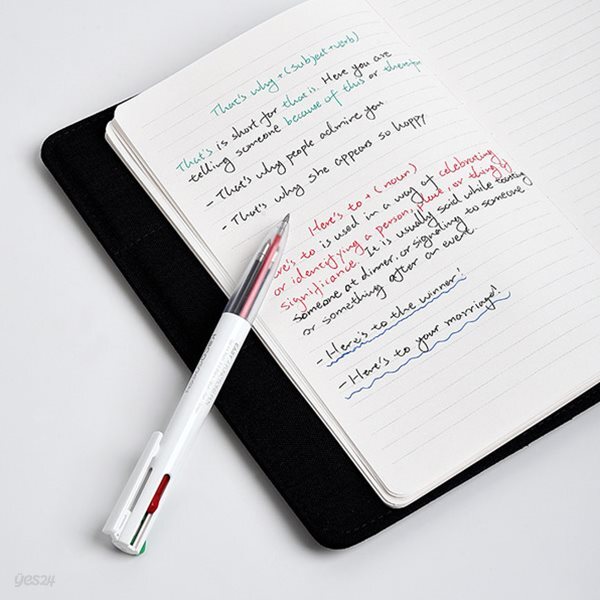 That's why + (subject + verb)
That's is short for that is. Here you are
telling someone because of this or therefore
- That's why people admire you
- That's why she appears so happy
Here's to + (noun)
Here's to is used in a way of celebrating
or identifying a person, place, or thing of
significance. It is usually said while toasting
someone at dinner, or signaling to someone
or something after an event.
- Here's to the winner!
- Here's to your marriage!
yes24